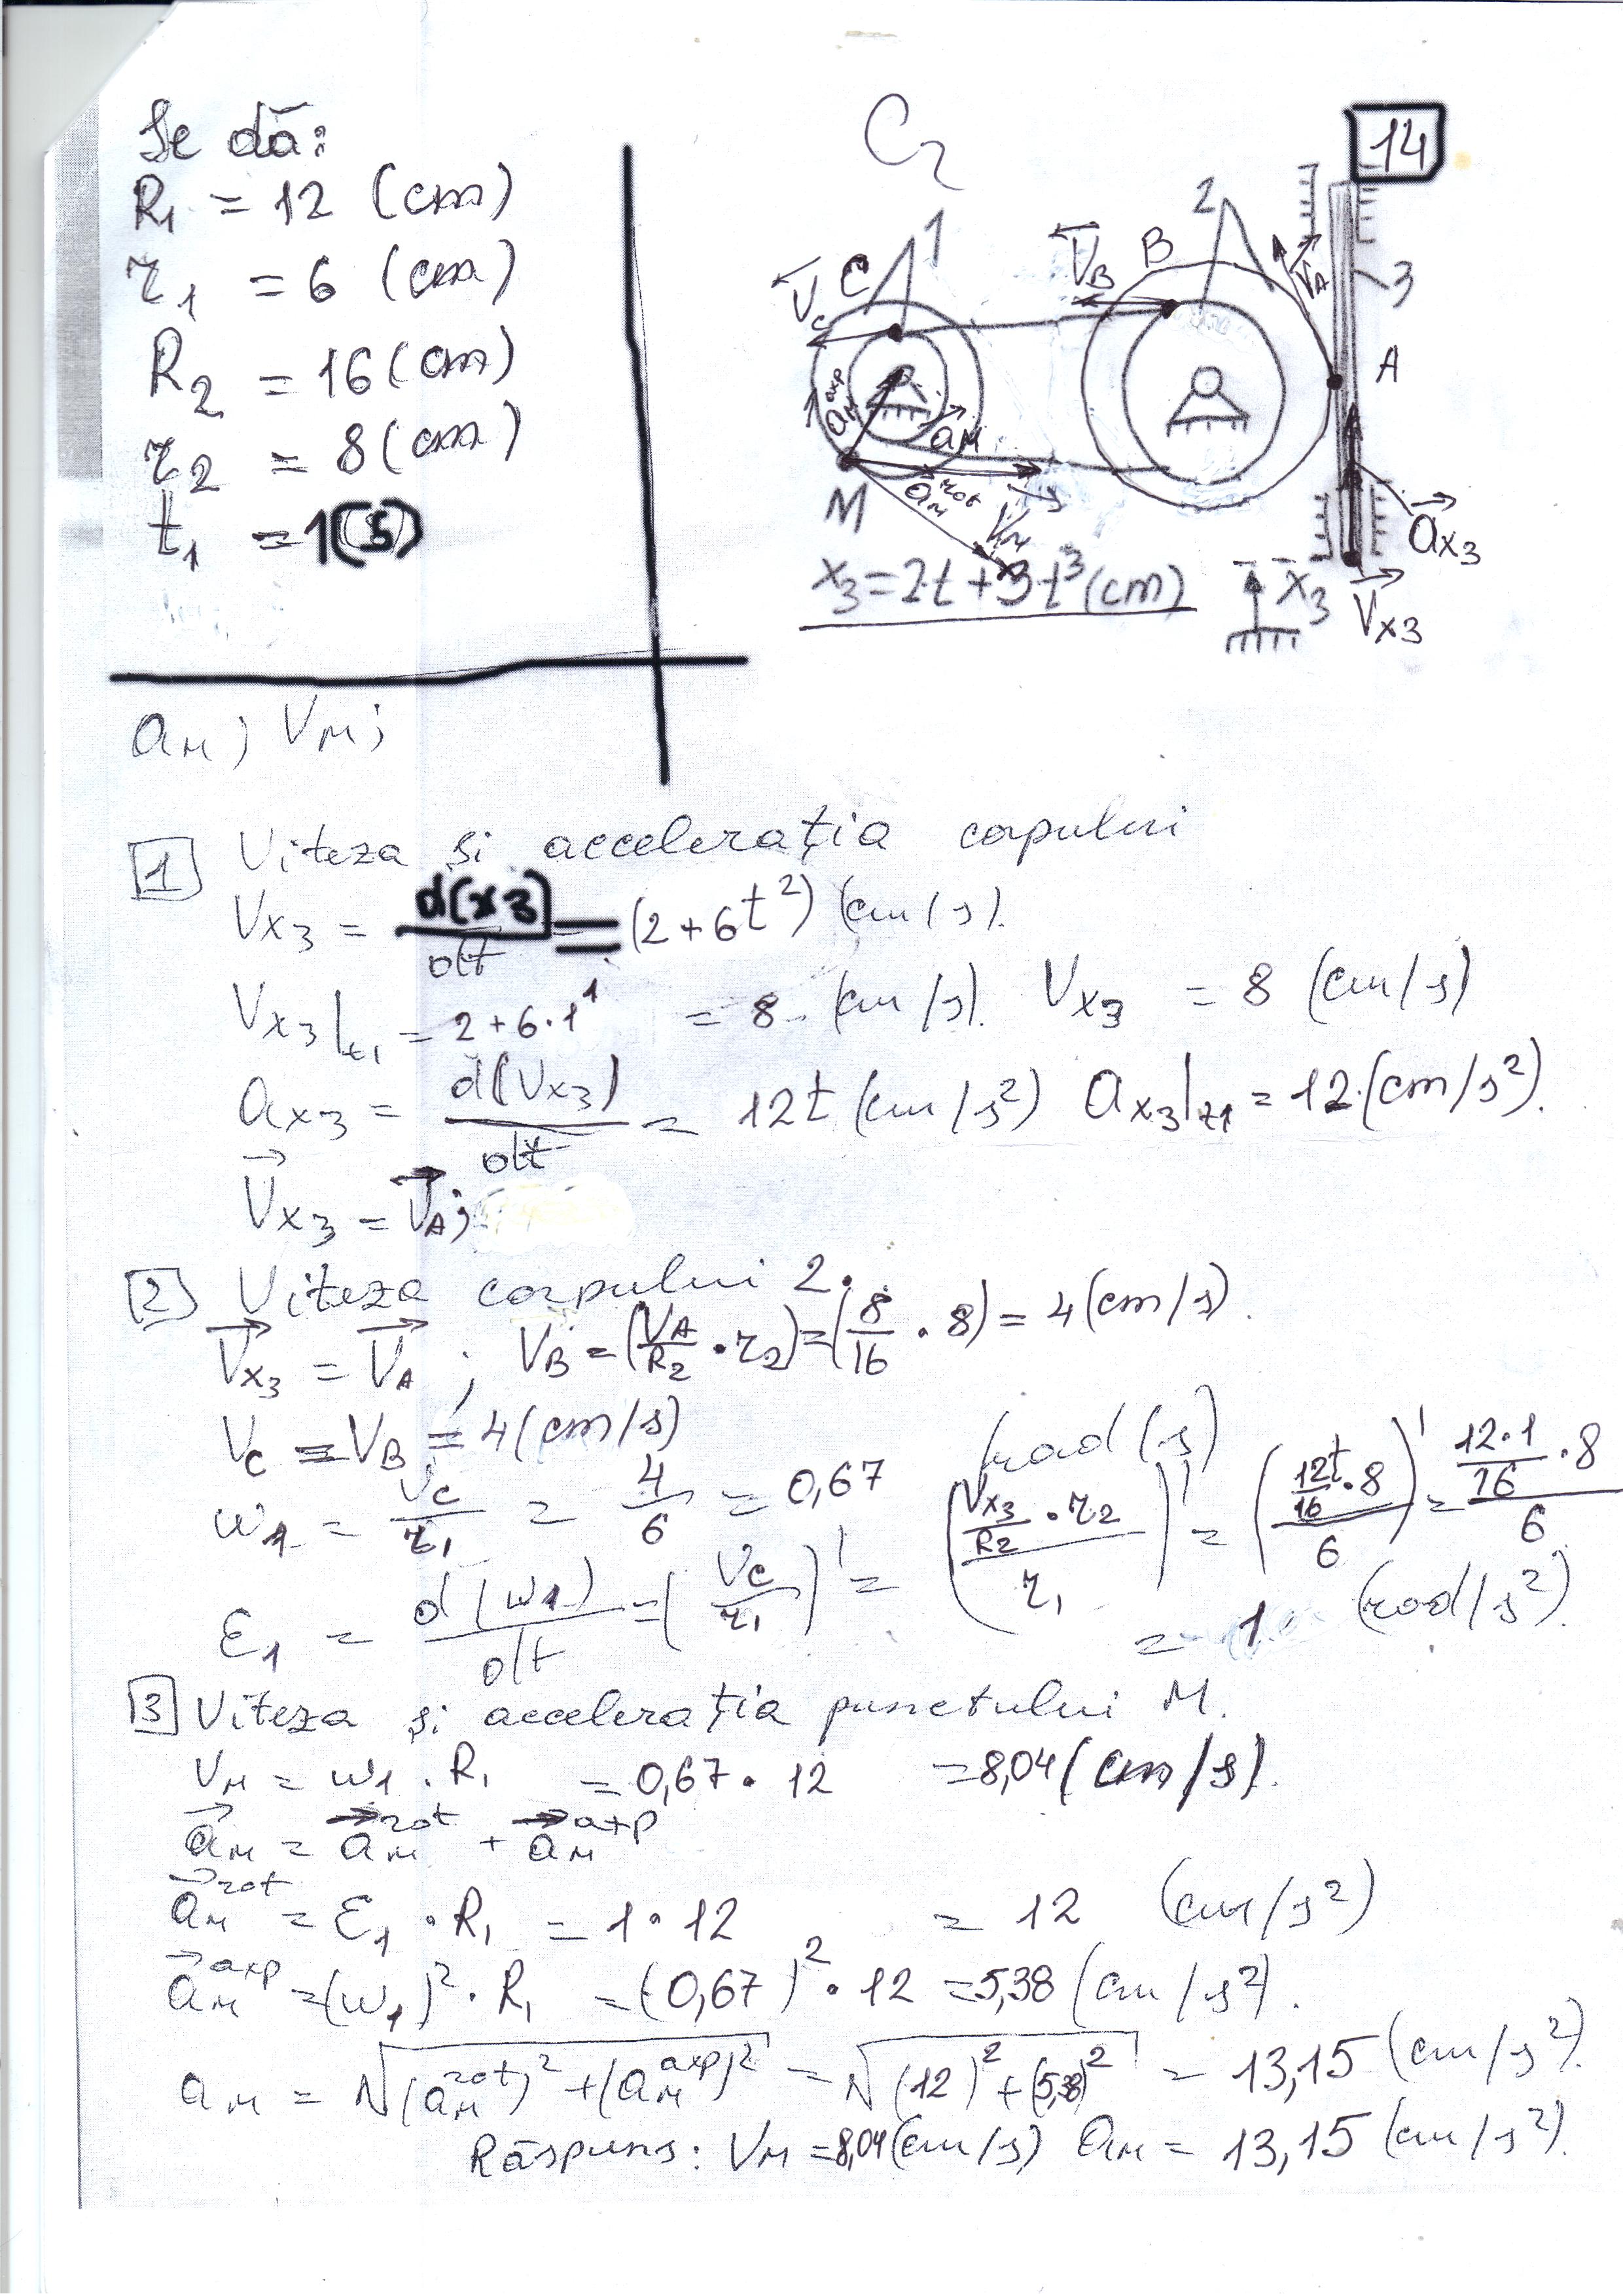 Se dă:
R₁ = 12 (cm)
r₁ = 6 (cm)
R₂ = 16 (cm)
r₂ = 8 (cm)
t₁ = 1(s)
aM; VM;
C₂
14
1
2
3
C
B
A
M
VC
VB
VA
aM^axp
aM
aM^rot
VM
x₃ = 2·t + 3·t³ (cm)
x₃
ax3
Vx3
1 Viteza și accelerația corpului
Vx3 = d(x3)/dt = (2 + 6t²) (cm/s).
Vx3|t1 = 2 + 6·1¹ = 8 (cm/s). Vx3 = 8 (cm/s)
ax3 = d(Vx3)/dt = 12t (cm/s²) ax3|t1 = 12 (cm/s²).
Vx3 = VA;
2 Viteza corpului 2.
Vx3 = VA; VB = (VA/R2 · r2) = (8/16 · 8) = 4 (cm/s).
VC = VB = 4 (cm/s)
ω1 = VC/r1 = 4/6 = 0,67 (rad/s)
ε1 = d(ω1)/dt = (VC/r1)' = ((Vx3/R2 · r2)/r1)' = ((12t/16 · 8)/6)' = (12·1/16 · 8)/6
= 1 (rad/s²).
3 Viteza și accelerația punctului M.
VM = ω1 · R1 = 0,67 · 12 = 8,04 (cm/s).
aM = aM^rot + aM^axp
aM^rot = ε1 · R1 = 1 · 12 = 12 (cm/s²)
aM^axp = (ω1)² · R1 = (0,67)² · 12 = 5,38 (cm/s²).
aM = √(aM^rot)² + (aM^axp)² = √(12)² + (5,38)² = 13,15 (cm/s²).
Răspuns: VM = 8,04 (cm/s) aM = 13,15 (cm/s²).